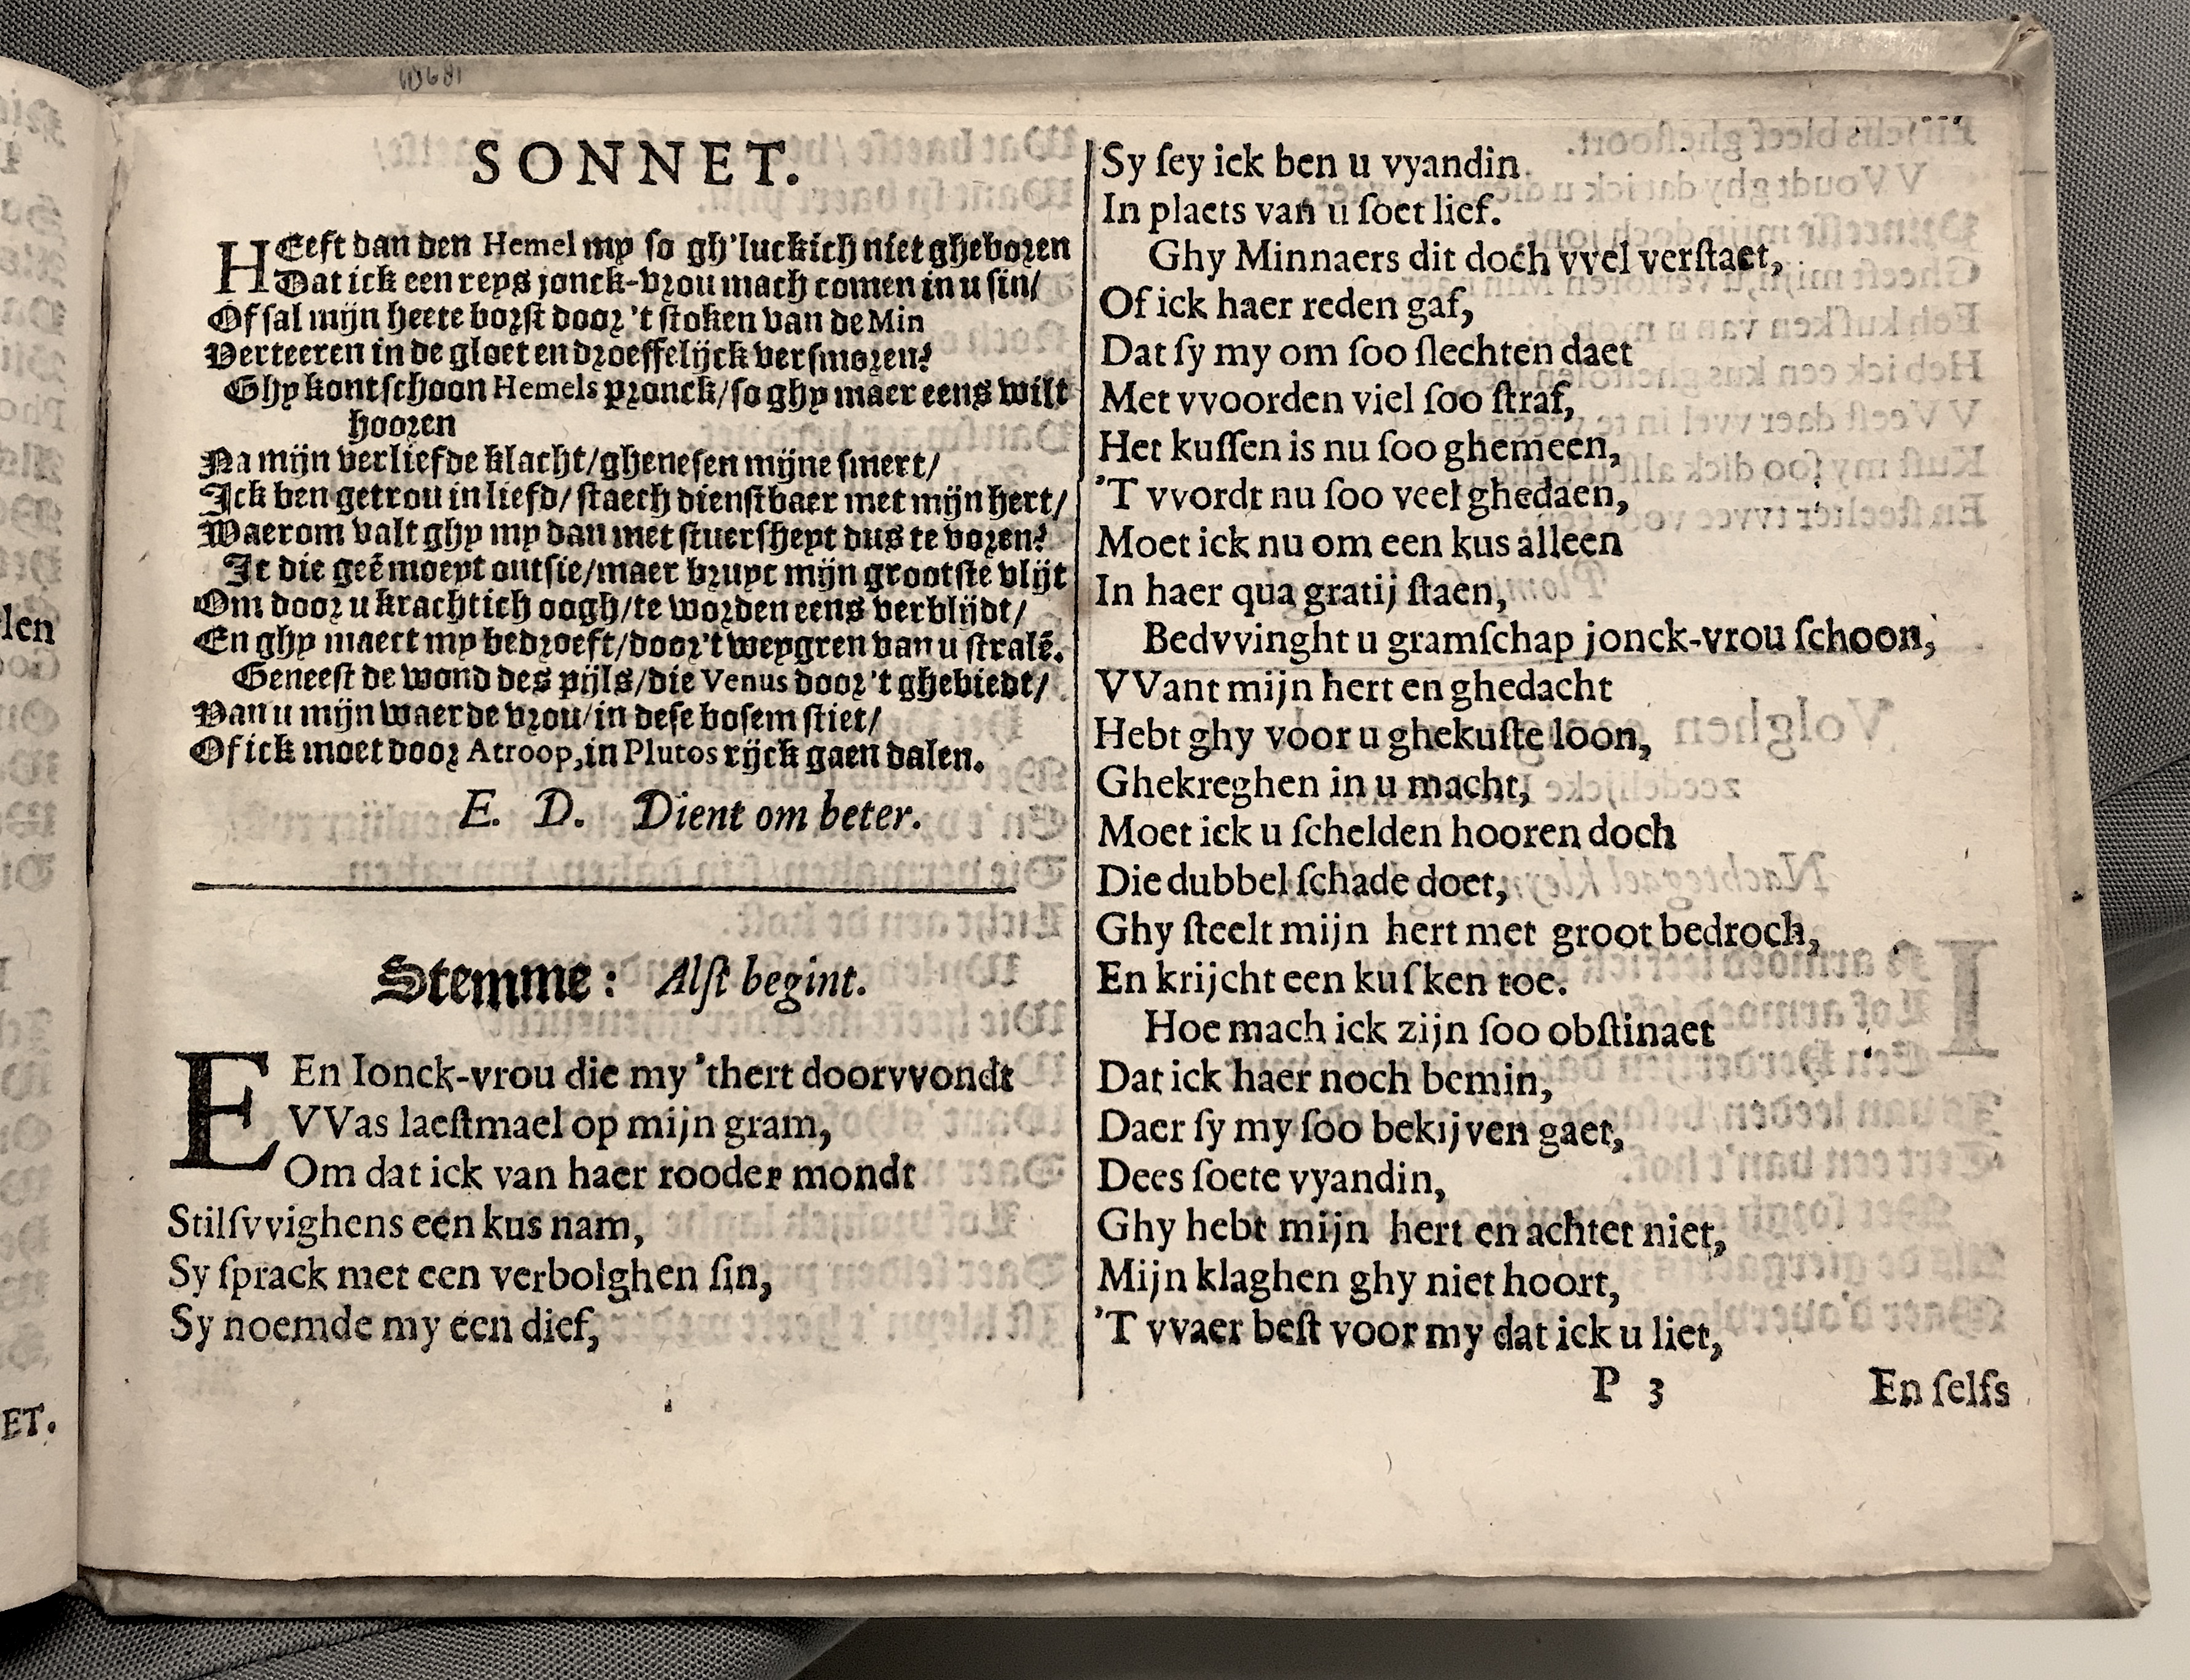 SONNET.
HEeft dan den Hemel my so gh'luckich niet gheboren
Dat ick een reys jonck-vrou mach comen in u sin/
Of sal mijn heete borst door 't stoken van de Min
Verteeren in de gloet en droeffelijck versmoren?
Ghy kont schoon Hemels pronck/so ghy maer eens wilt
hooren
Na mijn verliefde klacht/ghenesen mijne smert/
Ick ben getrou in liefd/ staech dienstbaer met mijn hert/
Waerom valt ghy my dan met stuersheyt dus te voren?
Ic die geē moeyt ontsie/maer bruyc mijn grootste vlijt
Om door u krachtich oogh/te worden eens verblijdt/
En ghy maect my bedroeft/door't weygren van u stralē.
Geneest de wond des pijls/die Venus door 't ghebiedt/
Van u mijn waerde vrou/in dese bosem stiet/
Of ick moet door Atroop,in Plutos rijck gaen dalen.
E. D. Dient om beter.
Stemme: Alſt begint.
EEn Ionck-vrou die my 'thert doorvvondt
VVas laeſtmael op mijn gram,
Om dat ick van haer rooder mondt
Stilſvvighens een kus nam,
Sy ſprack met een verbolghen ſin,
Sy noemde my een dief,
Sy ſey ick ben u vyandin
In plaets van u ſoet lief.
Ghy Minnaers dit doch vvel verſtaet,
Of ick haer reden gaf,
Dat ſy my om ſoo ſlechten daet
Met vvoorden viel ſoo ſtraf,
Het kuſſen is nu ſoo ghemeen,
'T vvordt nu ſoo veel ghedaen,
Moet ick nu om een kus alleen
In haer qua gratij ſtaen,
Bedvvinght u gramſchap jonck-vrou ſchoon,
VVant mijn hert en ghedacht
Hebt ghy voor u ghekuſte loon,
Ghekreghen in u macht,
Moet ick u ſchelden hooren doch
Die dubbel ſchade doet,
Ghy ſteelt mijn hert met groot bedroch,
En krijcht een kuſken toe.
Hoe mach ick zijn ſoo obſtinaet
Dat ick haer noch bemin,
Daer ſy my ſoo bekijven gaet,
Dees ſoete vyandin,
Ghy hebt mijn hert en achtet niet,
Mijn klaghen ghy niet hoort,
'T vvaer beſt voor my dat ick u liet,
P 3 En ſelfs